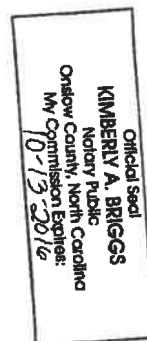 Official Seal
KIMBERLY A. BRIGGS
Notary Public
Onslow County, North Carolina
My Commission Expires:
10-13-2016